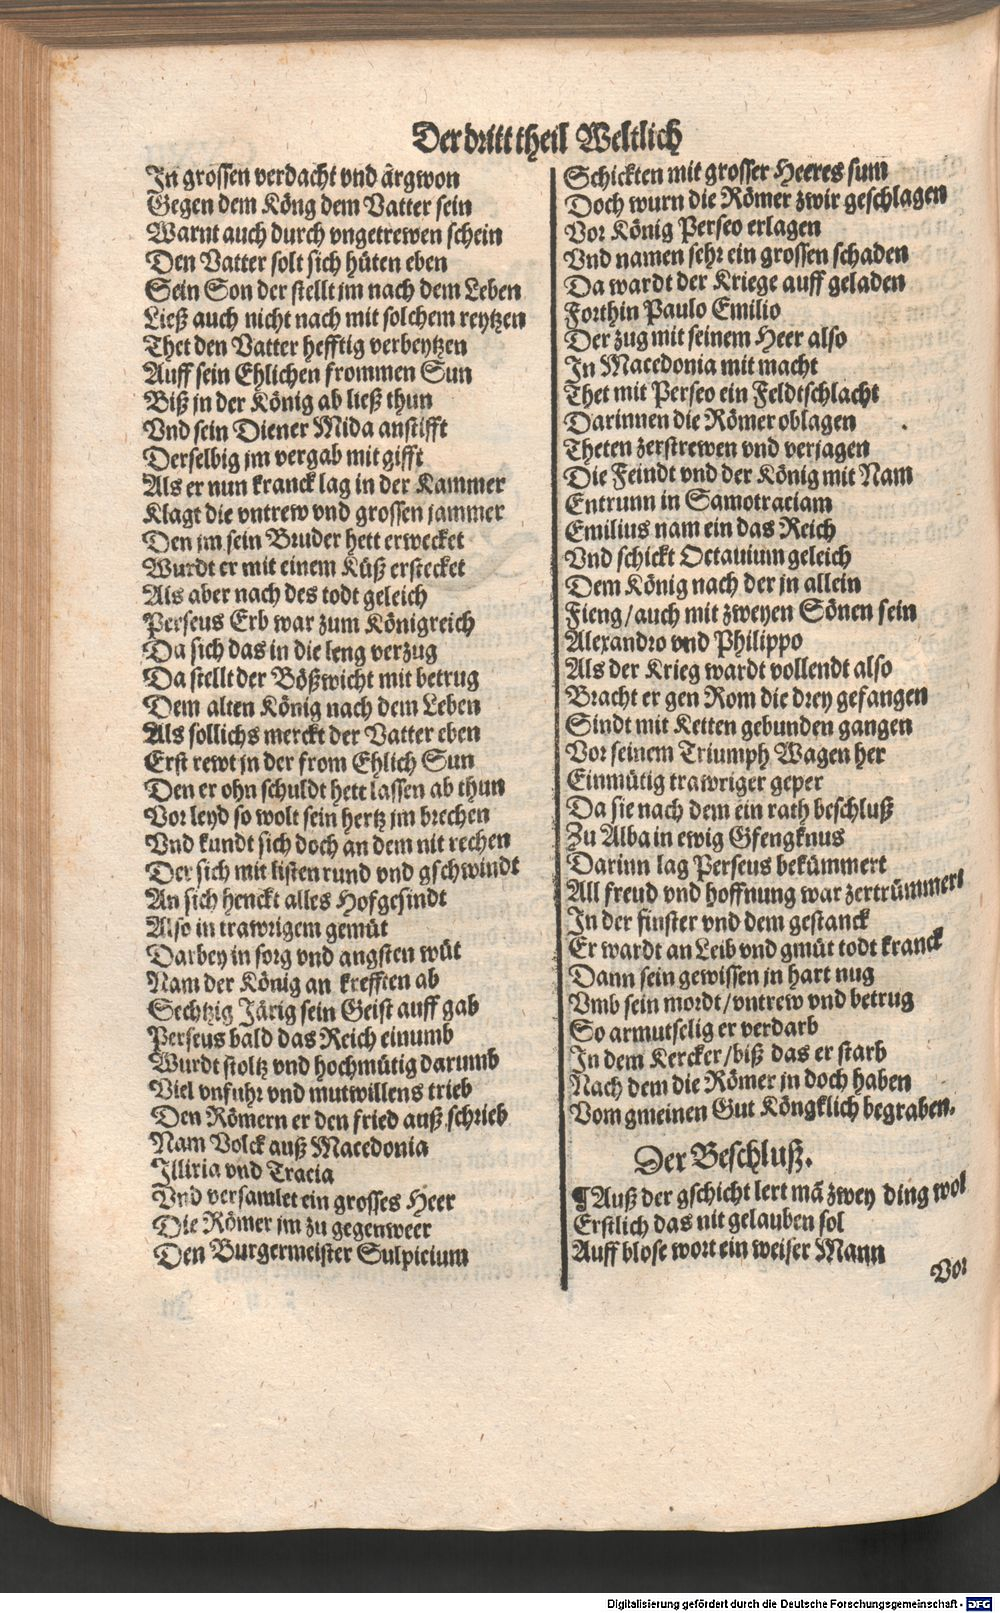 Der dritt theil Weltlich
In grossen verdacht vnd ärgwon
Gegen dem Köng dem Vatter sein
Warnt auch durch vngetrewen schein
Den Vatter solt sich hüten eben
Sein Son der stellt jm nach dem Leben
Ließ auch nicht nach mit solchem reytzen
Thet den Vatter hefftig verbeytzen
Auff sein Ehlichen frommen Sun
Biß jn der König ab ließ thun
Vnd sein Diener Mida anstifft
Derselbig jm vergab mit gifft
Als er nun kranck lag in der Kammer
Klagt die vntrew vnd grossen jammer
Den jm sein Bruder hett erwecket
Wurdt er mit einem Küß erstecket
Als aber nach des todt geleich
Perseus Erb war zum Königreich
Da sich das in die leng verzug
Da stellt der Bößwicht mit betrug
Dem alten König nach dem Leben
Als sollichs merckt der Vatter eben
Erst rewt jn der from Ehlich Sun
Den er ohn schuldt hett lassen ab thun
Vor leyd so wolt sein hertz jm brechen
Vnd kundt sich doch an dem nit rechen
Der sich mit listen rund vnd gschwindt
An sich henckt alles Hofgesindt
Also in trawrigem gemüt
Darbey in sorg vnd angsten wüt
Nam der König an krefften ab
Sechtzig Järig sein Geist auff gab
Perseus bald das Reich einumb
Wurdt stoltz vnd hochmütig darumb
Viel vnfuhr vnd mutwillens trieb
Den Römern er den fried auß schrieb
Nam Volck auß Macedonia
Illiria vnd Tracia
Vnd versamlet ein grosses Heer
Die Römer jm zu gegenweer
Den Burgermeister Sulpicium
Schickten mit grosser Heeres sum
Doch wurn die Römer zwir geschlagen
Vor König Perseo erlagen
Vnd namen sehr ein grossen schaden
Da wardt der Kriege auff geladen
Forthin Paulo Emilio
Der zug mit seinem Heer also
In Macedonia mit macht
Thet mit Perseo ein Feldtschlacht
Darinnen die Römer oblagen
Theten zerstrewen vnd verjagen
Die Feindt vnd der König mit Nam
Entrunn in Samotraciam
Emilius nam ein das Reich
Vnd schickt Octauium geleich
Dem König nach der jn allein
Fieng/auch mit zweyen Sönen sein
Alexandro vnd Philippo
Als der Krieg wardt vollendt also
Bracht er gen Rom die drey gefangen
Sindt mit Ketten gebunden gangen
Vor seinem Triumph Wagen her
Einmütig trawriger geper
Da sie nach dem ein rath beschluß
Zu Alba in ewig Gfengknus
Darinn lag Perseus bekümmert
All freud vnd hoffnung war zertrümmert
In der finster vnd dem gestanck
Er wardt an Leib vnd gmüt todt kranck
Dann sein gewissen jn hart nug
Vmb sein mordt/vntrew vnd betrug
So armutselig er verdarb
In dem Kercker/biß das er starb
Nach dem die Römer jn doch haben
Vom gmeinen Gut Köngklich begraben.
Der Beschluß.
¶ Auß der gschicht lert mā zwey ding wol
Erstlich das nit gelauben sol
Auff blose wort ein weiser Mann
Vor
Digitalisierung gefördert durch die Deutsche Forschungsgemeinschaft - DFG